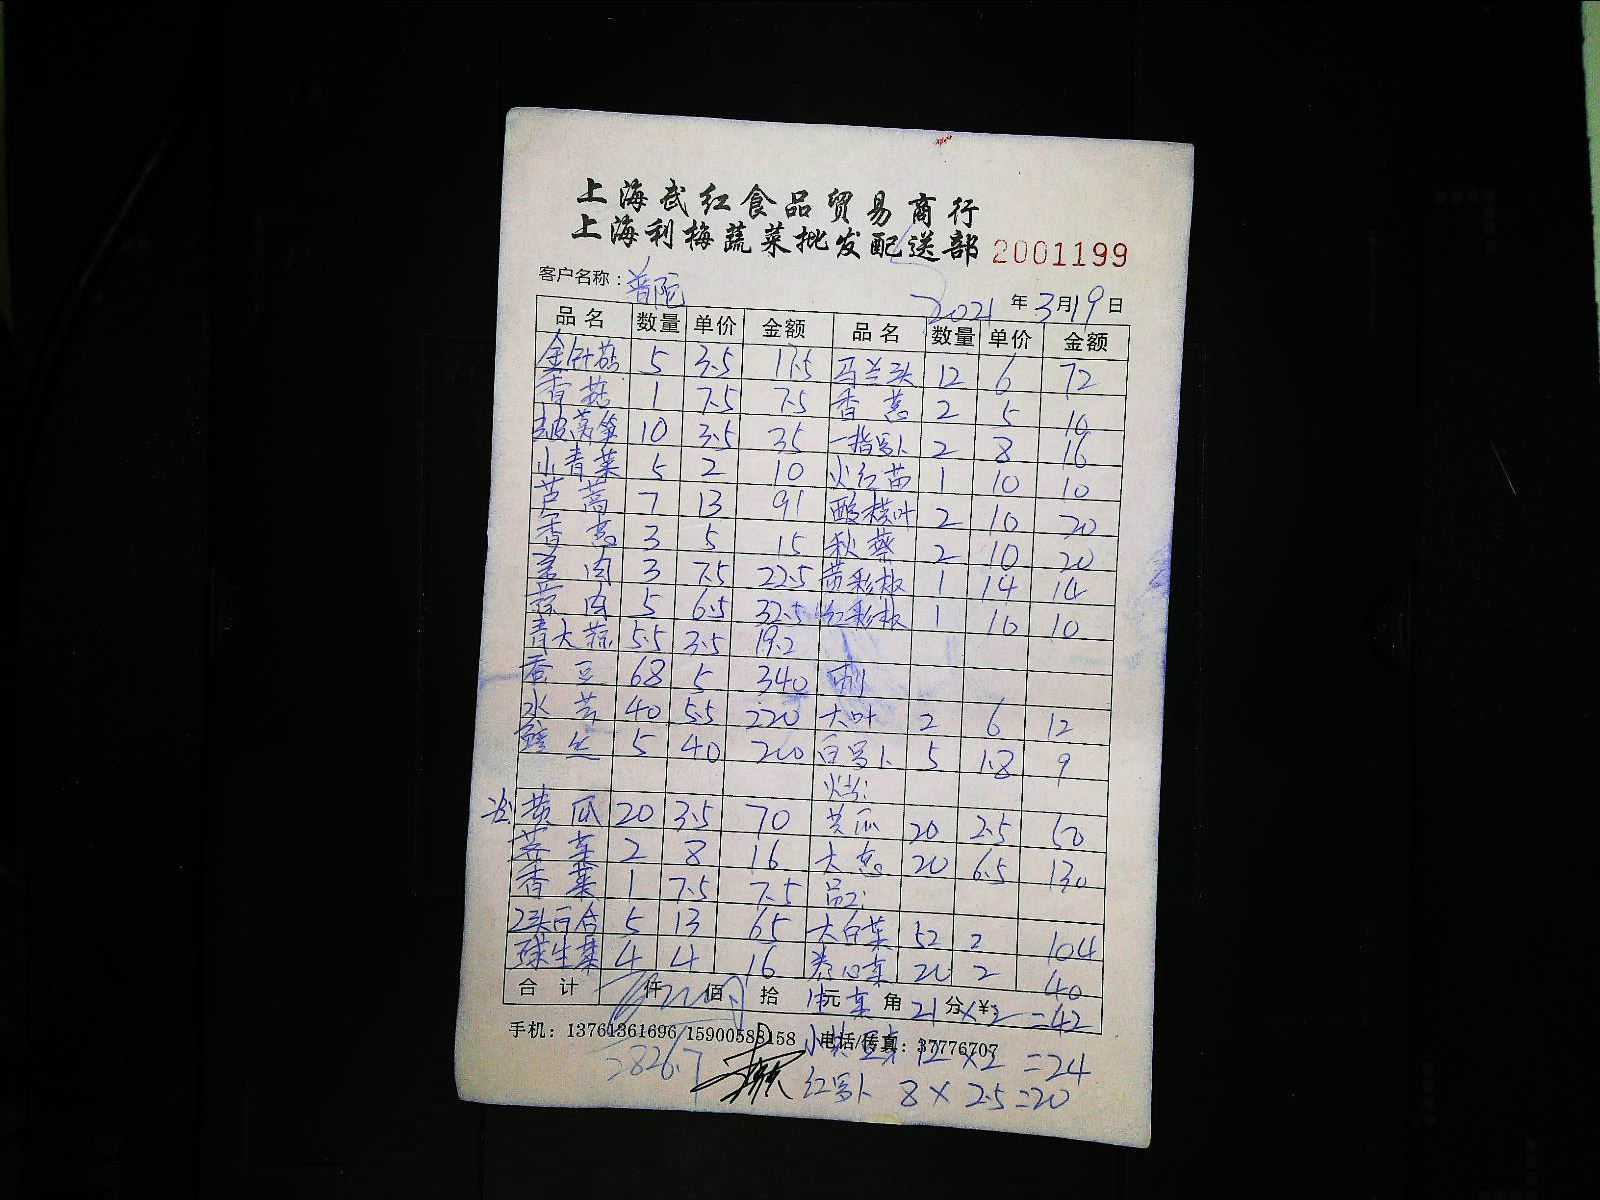 上海武红食品贸易商行
上海利梅蔬菜批发配送部 2001199
客户名称：普陀 2021年3月19日
品名 数量 单价 金额 品名 数量 单价 金额
金针菇 5 3.5 17.5 马兰头 12 6 72
香菇 1 7.5 7.5 香葱 2 5 10
莴笋 10 3.5 35 一指罗卜 2 8 16
小青菜 5 2 10 火红苗 1 10 10
芦蒿 7 13 91 酸模叶 2 10 20
香葱 3 5 15 秋葵 2 10 20
姜肉 3 7.5 22.5 黄彩椒 1 14 14
蒜肉 5 6.5 32.5 红彩椒 1 10 10
青大蒜 5.5 3.5 19.2
蚕豆 68 5 340
水芹 40 5.5 220 大叶 2 6 12
鳝丝 5 40 200 白罗卜 5 1.8 9
黄瓜 20 3.5 70 黄瓜 20 2.5 50
芹菜 2 8 16 大葱 20 6.5 130
香菜 1 7.5 7.5
百合 5 13 65 大白菜 52 2 104
球生菜 4 4 16 卷心菜 20 2 40
合计 仟 佰 拾 元 角 分 ¥: 21×2=42
手机：13761361696 15900588158 电话/传真：37776707
12×2=24
2826.7 红罗卜 8×2.5=20